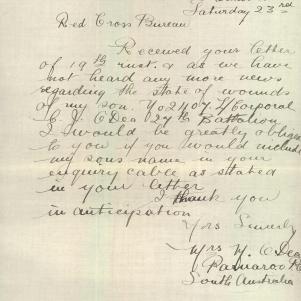 Saturday 23rd
Red Cross Bureau
Received your letter
of 19th inst. & as we have
not heard any more news
regarding the state of wounds
of my son. No 2707. L/Corporal
C. V. O'Dea 27th Battalion
I would be greatly oblige
to you if you would include
my sons name in your
enquiry cable as stated
in your letter
I thank you
in anticipation
Yrs Sincerly
Mrs M. O'Dea
Parnaroo
South Australia